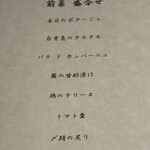 前菜 盛合せ
本日のポタージュ
白身魚のタルタル
パテ ド カンパーニュ
鰻の甘酢漬け
鶏のテリーヌ
トマト釜
〆鯖の炙り